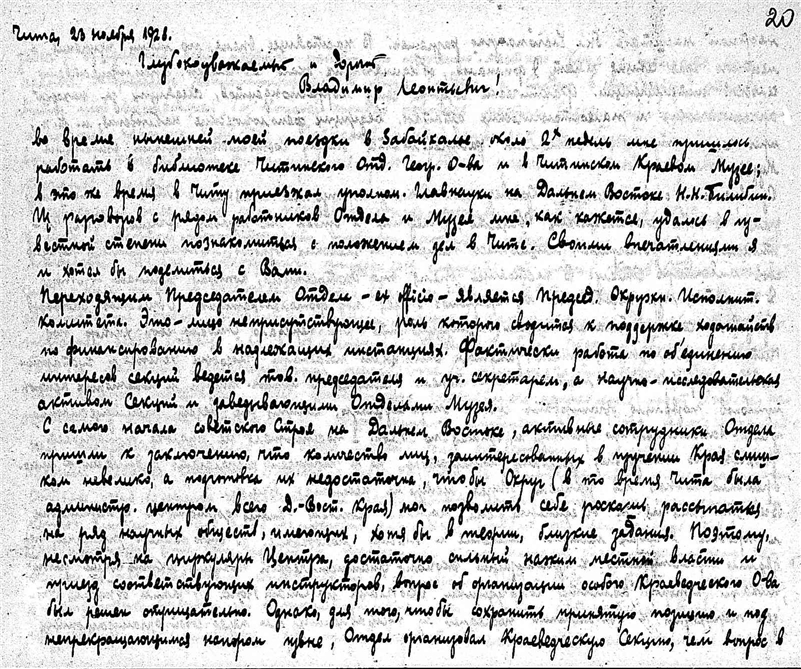 20
Чита, 23 ноября 1928.
Глубокоуважаемый и дорогой
Владимир Леонтьевич.
во время нынешней моей поездки в Забайкалье около 2х недель мне пришлось
работать в библиотеке Читинского Отд. Геогр. О-ва и в Читинском Краевом Музее;
в это же время в Читу приезжал уполном. Главнауки на Дальнем Востоке Н.Н. Билибин.
Из разговоров с рядом работников Отдела и Музея мне, как кажется, удалось в из-
вестной степени познакомиться с положением дел в Чите. Своими впечатлениями я
и хотел бы поделиться с Вами.
Председателем Отдела – ex officio – является Председ. Окружн. Исполнит.
комитета. Это – лицо неприсутствующее, роль которого сводится к поддержке ходатайств
по финансированию в надлежащих инстанциях. Фактически работа по об'единению
интересов секций ведется тов. председателя и уч. секретарем, а научно-исследовательская
активом Секций и заведывающими Отделами Музея.
С самого начала советского Строя на Дальнем Востоке, активные сотрудники Отдела
пришли к заключению, что количество лиц, заинтересованных в изучении Края слиш-
ком невелико, а подготовка их недостаточна, чтобы Округ (в то время Чита была
администр. центром всего Д.-Вост. Края) мог позволить себе роскошь рассыпаться
на ряд научных обществ, имеющих, хотя бы в теории, близкие задания. Поэтому,
несмотря на циркуляры Центра, достаточно сильный нажим местной власти и
приезд соответствующих инструкторов, вопрос об организации особого Краеведческого О-ва
был решен отрицательно. Однако, для того, чтобы сохранить принятую позицию и под
непрекращающимся напором извне, Отдел организовал Краеведческую Секцию, чем вопрос в